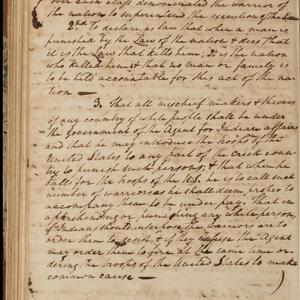 over each class denominated the warrior of
the nation to superintend the execution of the Law
2. To declare as law that when a man is
punished by the Law of the nation & dies that
it is the Law that kills him; It is the nation
who killed him & that no man or family is
to be held accountable for this act of the na-
tion —
3. That all mischief makers & thieves
of any country of white people shall be under
the government of the Agent for Indian affairs
and that he may introduce the troops of the
United States to any part of the Creek coun-
try to punish such persons; & that when he
calls for the troops of the U.S. he is to call such
number of warriors as he shall deem proper to
accompany them to be under pay. That in
apprehending or punishing any white person
if Indians should interpose the warriors are to
order them to desist; & if they refuse the Agent
may order them to fire at the same time or-
dering the troops of the United States to make
common cause —